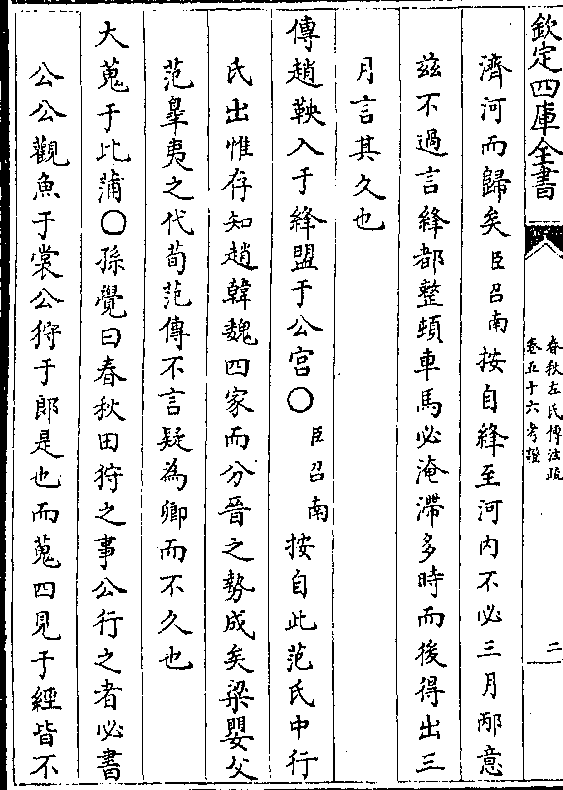 欽定四庫全書
春秋左氏傳注疏
卷五十六考證
二
濟河而歸矣臣召南按自絳至河內不必三月邴意
茲不過言絳都整頓車馬必淹滯多時而後得出三
月言其久也
傳趙鞅入于絳盟于公宮〇臣召南按自此范氏中行
氏出惟存知趙韓魏四家而分晉之勢成矣梁嬰父
范臯夷之代荀范傳不言疑為卿而不久也
大蒐于比蒲〇孫覺曰春秋田狩之事公行之者必書
公公觀魚于棠公狩于郎是也而蒐四見于經皆不